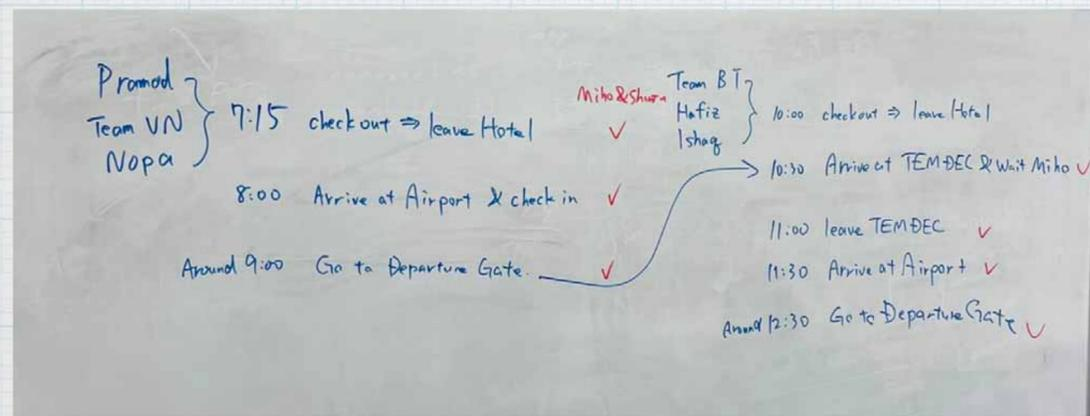 Promod
Team VN
Nopa
7:15 checkout ⇒ leave Hotel
8:00 Arrive at Airport & check in
Around 9:00 Go to Departure Gate.
Miho & Shura
Team BT
Hafiz
Ishaq
10:00 checkout ⇒ leave Hotel
10:30 Arrive at TEMDEC & Wait Miho
11:00 leave TEMDEC
11:30 Arrive at Airport
Around 12:30 Go to Departure Gate